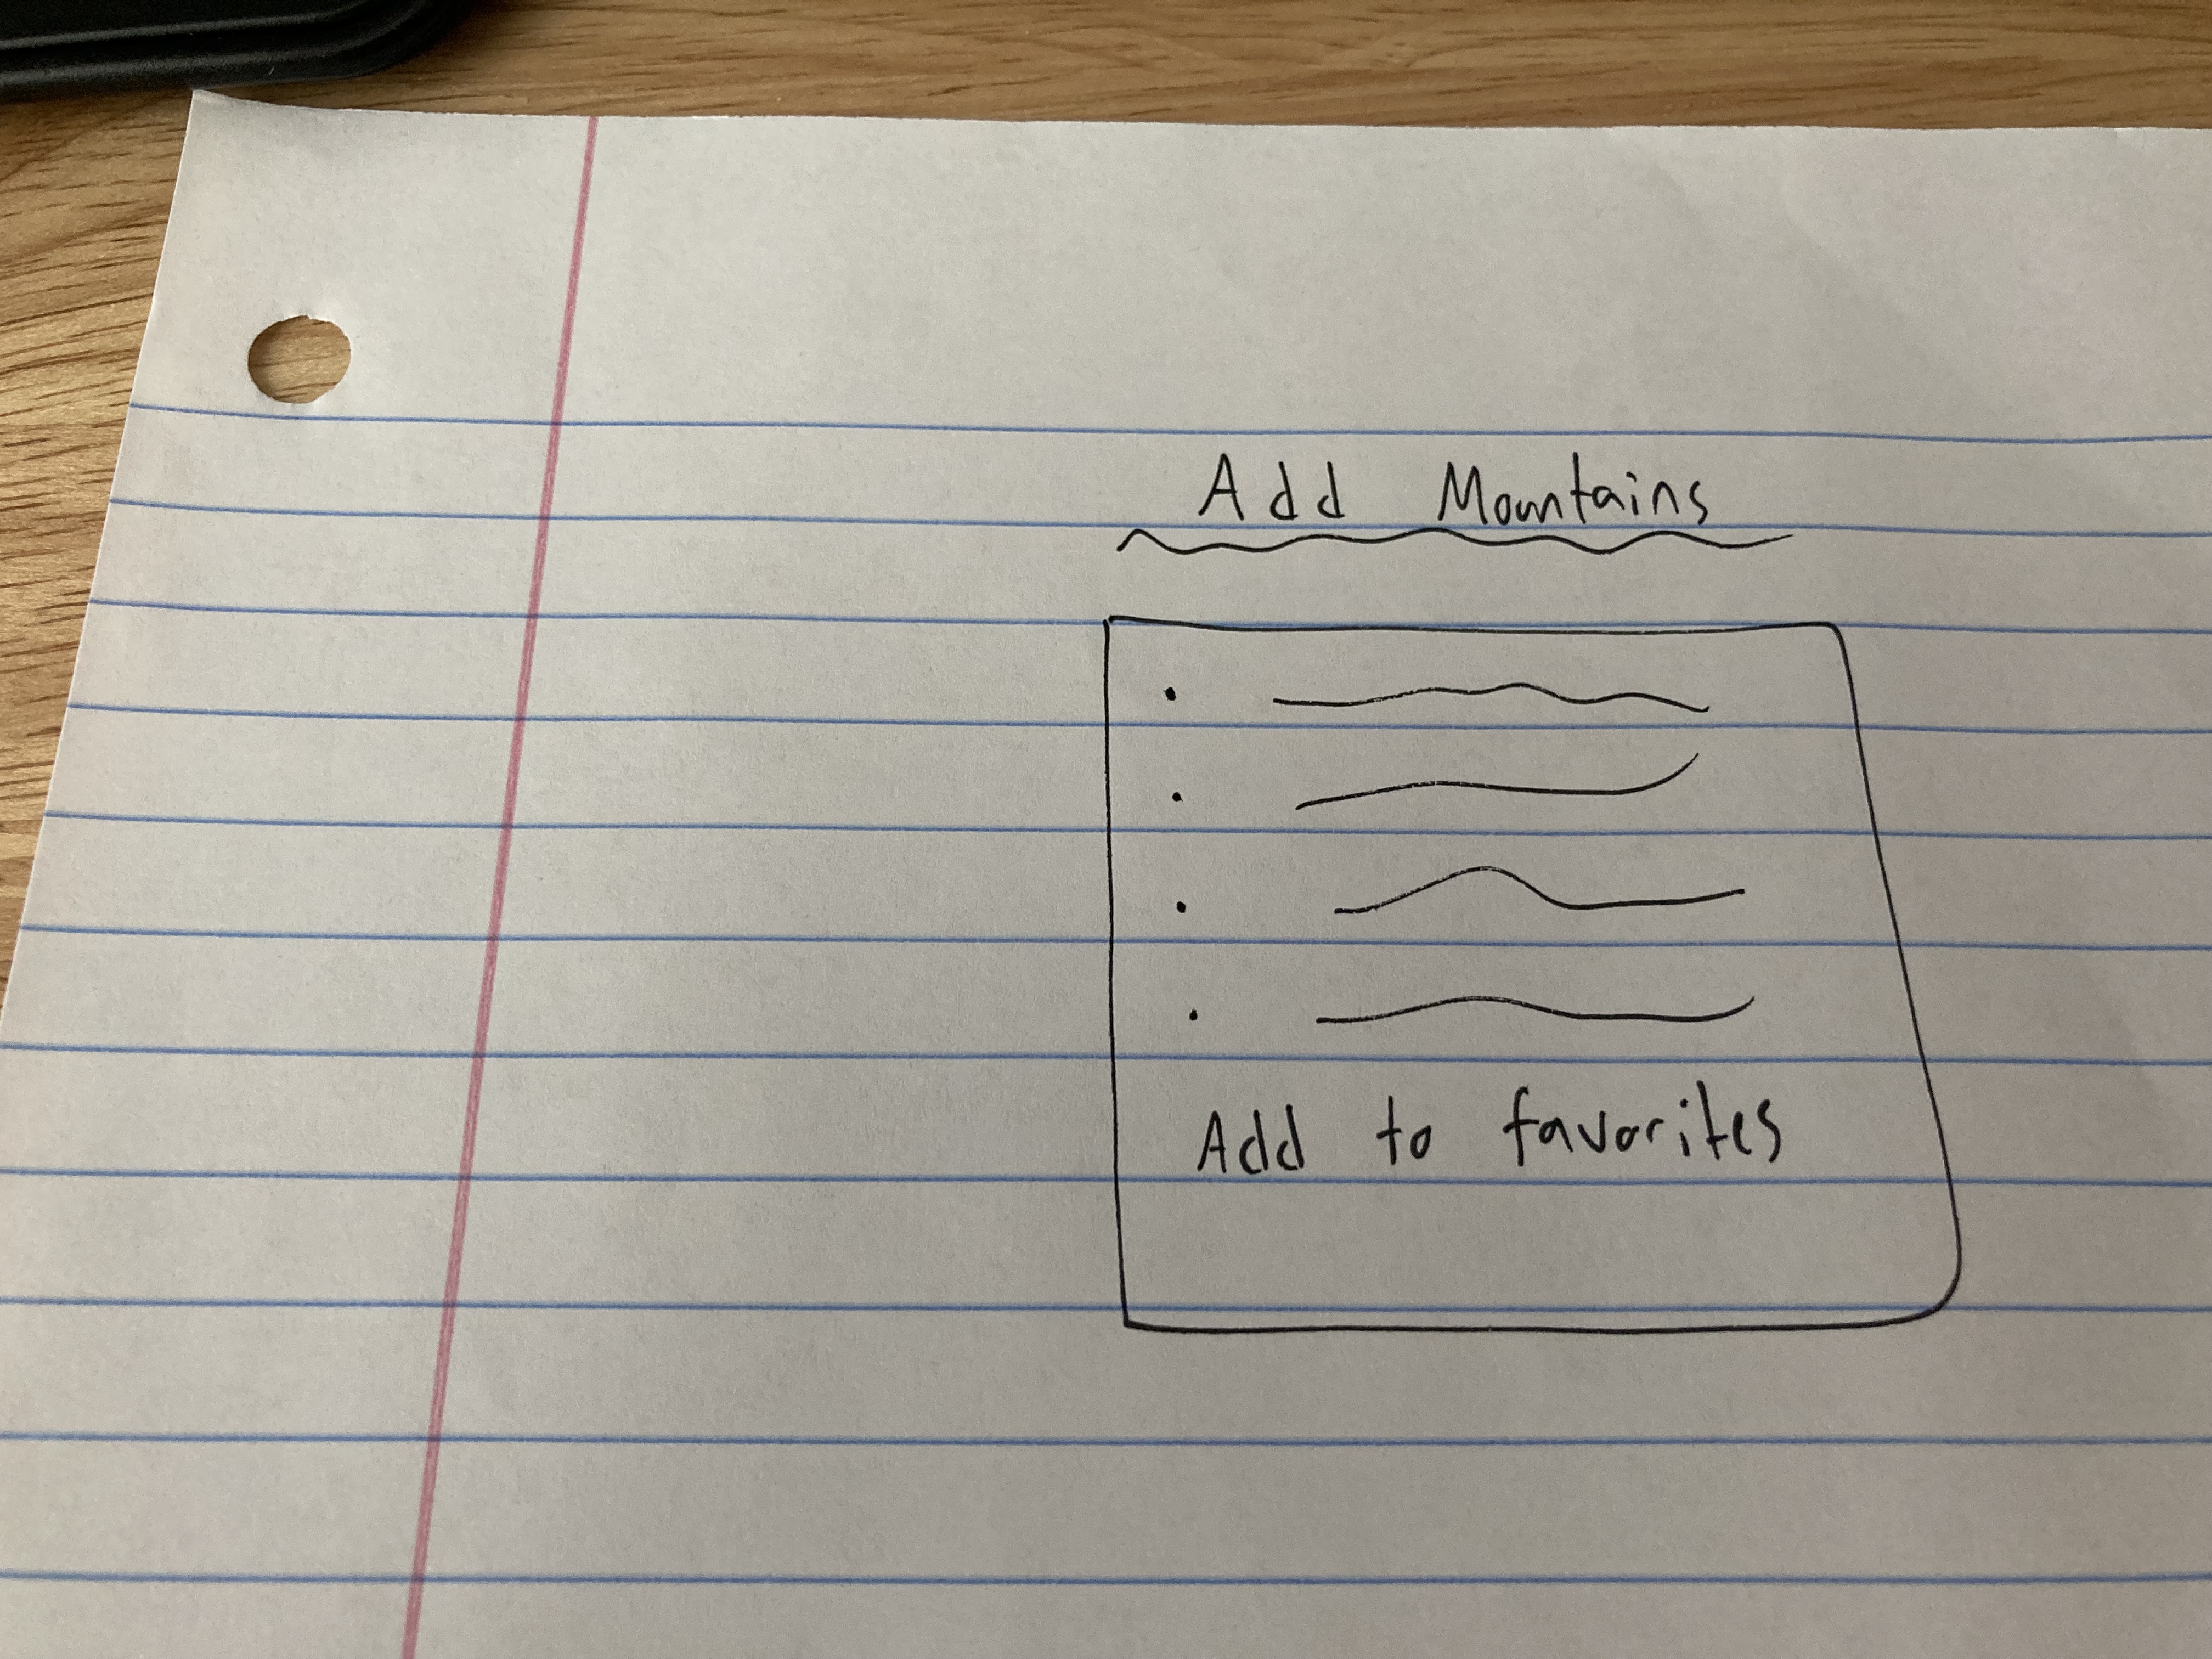 Add Mountains
Add to favorites